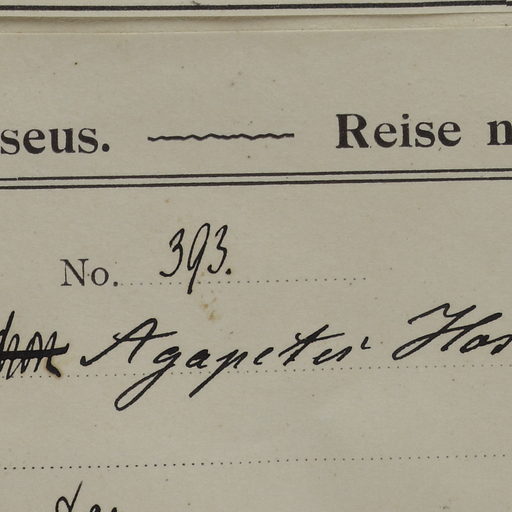 seus. Reise n
No. 393.
Agapetes Hos